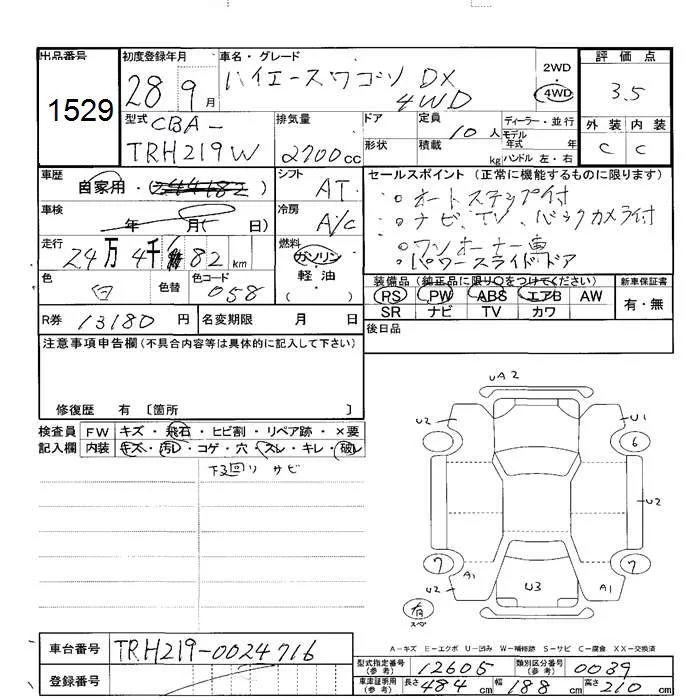 出品番号 1529
初度登録年月 28 9月
車名・グレード ハイエースワゴン DX 4WD
2WD・4WD
評価点 3.5
型式 CBA-TRH219W
排気量 2700cc
ドア
形状
定員 10人
積載 kg
ディーラー・並行
モデル年式 年
ハンドル 左・右
外装 内装
C C
車歴 自家用・
シフト AT
セールスポイント (正常に機能するものに限ります)
。オートステップ付
。ナビ、TV、バックカメラ付
。ワンオーナー車
。パワースライドドア
車検 年 月( 日)
冷房 A/C
走行 24万4千 82km
燃料 ガソリン・軽・油 ( )
色 白 色替 色コード 058
装備品 (純正品に限り○をつけてください)
PS PW ABS エアB AW
SR ナビ TV カワ
新車保証書
有・無
R券 13180円 名変期限 月 日
後日品
注意事項申告欄 (不具合内容等は具体的に記入して下さい)
修復歴 有 〔箇所 〕
検査員記入欄
FW キズ・飛石・ヒビ割・リペア跡・×要
内装 キズ・汚レ・コゲ・穴・スレ・キレ・破レ
下廻り サビ
UA2
U2 U1
6
U2
7 7
U2 A1 U3 A1
有
スペ
A-キズ E-エクボ U-凹み W-補修跡 S-サビ C-腐食 XX-交換済
車台番号 TRH219-0024716
登録番号
型式指定番号(参考) 12605 類別区分番号(参考) 0039
車庫証明用(参考) 長さ 484cm 幅 188cm 高さ 210cm